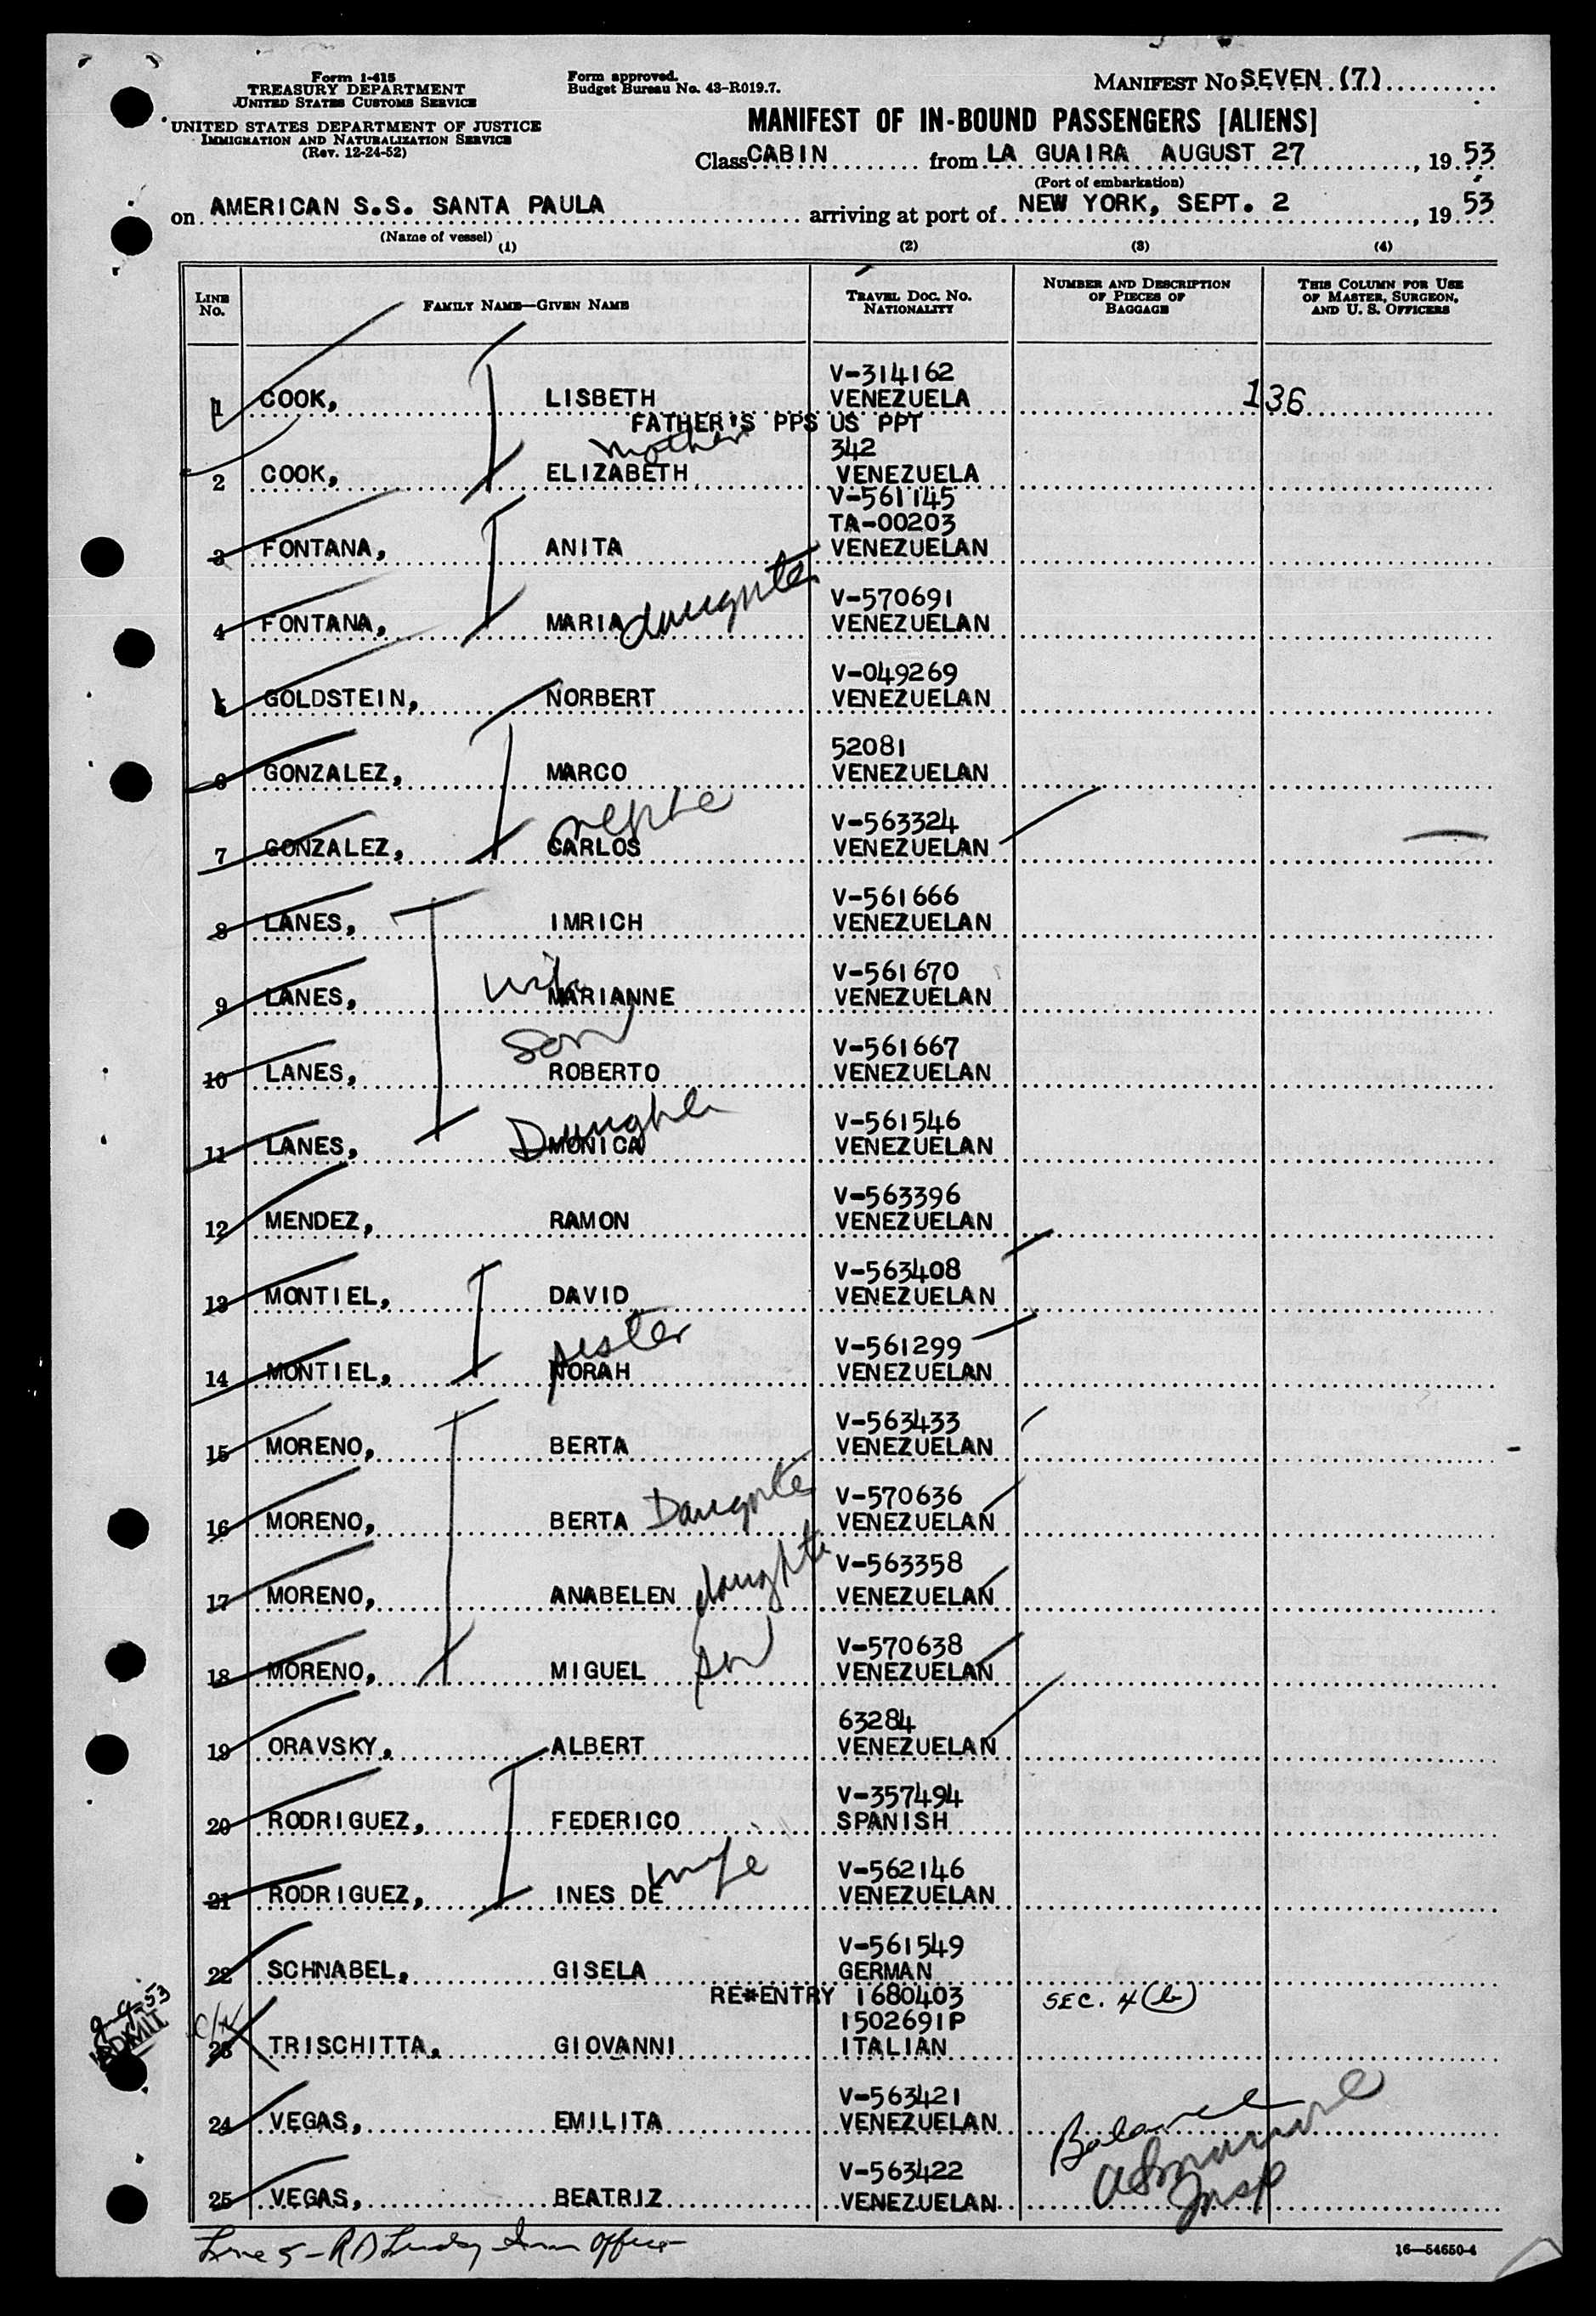 Form 1-415
TREASURY DEPARTMENT
UNITED STATES CUSTOMS SERVICE
UNITED STATES DEPARTMENT OF JUSTICE
IMMIGRATION AND NATURALIZATION SERVICE
(Rev. 12-24-52)
Form approved.
Budget Bureau No. 43-R019.7.
MANIFEST NO SEVEN (7)
MANIFEST OF IN-BOUND PASSENGERS [ALIENS]
Class CABIN from LA GUAIRA AUGUST 27, 1953
(Port of embarkation)
on AMERICAN S.S. SANTA PAULA arriving at port of NEW YORK, SEPT. 2, 1953
(Name of vessel)
(1) (2) (3) (4)
LINE NO. FAMILY NAME—GIVEN NAME TRAVEL DOC. NO. NATIONALITY NUMBER AND DESCRIPTION OF PIECES OF BAGGAGE THIS COLUMN FOR USE OF MASTER, SURGEON, AND U. S. OFFICERS
V-314162
1 COOK, LISBETH VENEZUELA 136
FATHER'S PPS US PPT
mother 342
2 COOK, ELIZABETH VENEZUELA
V-561145
TA-00203
3 FONTANA, ANITA VENEZUELAN
V-570691
4 FONTANA, MARIA daughter VENEZUELAN
V-049269
5 GOLDSTEIN, NORBERT VENEZUELAN
52081
6 GONZALEZ, MARCO VENEZUELAN
V-563324
7 GONZALEZ, CARLOS VENEZUELAN
V-561666
8 LANES, IMRICH VENEZUELAN
wife V-561670
9 LANES, MARIANNE VENEZUELAN
son V-561667
10 LANES, ROBERTO VENEZUELAN
Daughter V-561546
11 LANES, MONICA VENEZUELAN
V-563396
12 MENDEZ, RAMON VENEZUELAN
V-563408
13 MONTIEL, DAVID VENEZUELAN
sister V-561299
14 MONTIEL, NORAH VENEZUELAN
V-563433
15 MORENO, BERTA VENEZUELAN
V-570636
16 MORENO, BERTA Daughter VENEZUELAN
V-563358
17 MORENO, ANABELEN daughter VENEZUELAN
V-570638
18 MORENO, MIGUEL son VENEZUELAN
63284
19 ORAVSKY, ALBERT VENEZUELAN
V-357494
20 RODRIGUEZ, FEDERICO SPANISH
wife V-562146
21 RODRIGUEZ, INES DE VENEZUELAN
V-561549
22 SCHNABEL, GISELA GERMAN
RE*ENTRY 1680403 SEC. 4 (b)
1502691P
23 TRISCHITTA, GIOVANNI ITALIAN
ADMIT
V-563421
24 VEGAS, EMILITA VENEZUELAN
Balance
V-563422
25 VEGAS, BEATRIZ VENEZUELAN
Insp
Line 5 - R D Office
16—54650-4